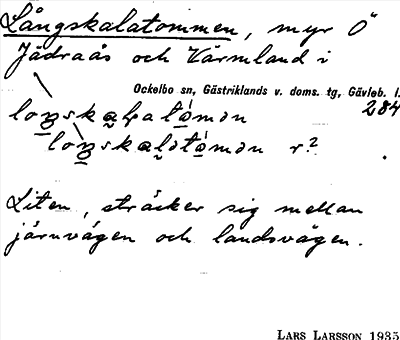 Långskalatommen, myr Ö
Jädraås och Värmland i
Ockelbo sn, Gästriklands v. doms. tg, Gävleb. l.
284
r?
Liten, sträcker sig mellan
järnvägen och landsvägen.
LARS LARSSON 1935